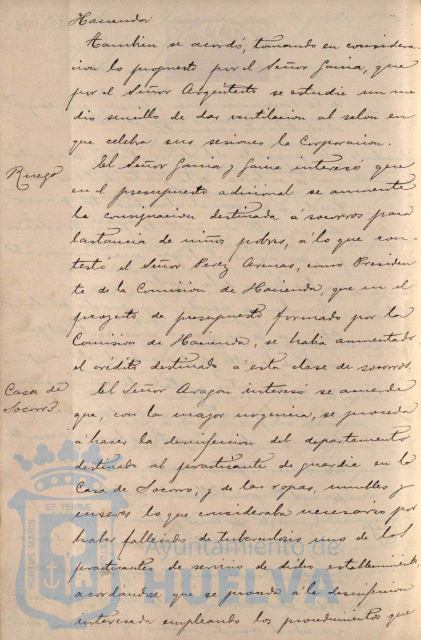 Hacienda
Tambien se acordó, tomando en considera-
cion lo propuesto por el Señor Garcia, que
por el Señor Arquitecto se estudie un me-
dio sencillo de dar ventilacion al salon en
que celebra sus sesiones la Corporacion.
Ruego
El Señor Garcia y Garcia interesó que
en el presupuesto adicional se aumente
la consignacion destinada á socorros para
lactancia de niños pobres, á lo que con-
testó el Señor Perez Arenas, como Presiden-
te de la Comision de Hacienda, que en el
proyecto de presupuesto formado por la
Comision de Hacienda, se habia aumentado
el crédito destinado á esta clase de socorros.
Casa de
Socorro.
El Señor Aragon interesó se acuerde
que, con la mayor urgencia, se proceda
á hacer la desinfeccion del departamento
destinado al practicante de guardia en la
Casa de Socorro, y de las ropas, muebles y
enseres lo que consideraba necesario por
haber fallecido de tuberculosis uno de los
practicantes de servicio de dicho establecimiento,
acordándose que se proceda á la desinfeccion
interesada empleando los procedimientos que
PORTUS MARIS
ET TERRAE
CUSTODIA
Ayuntamiento de
HUELVA